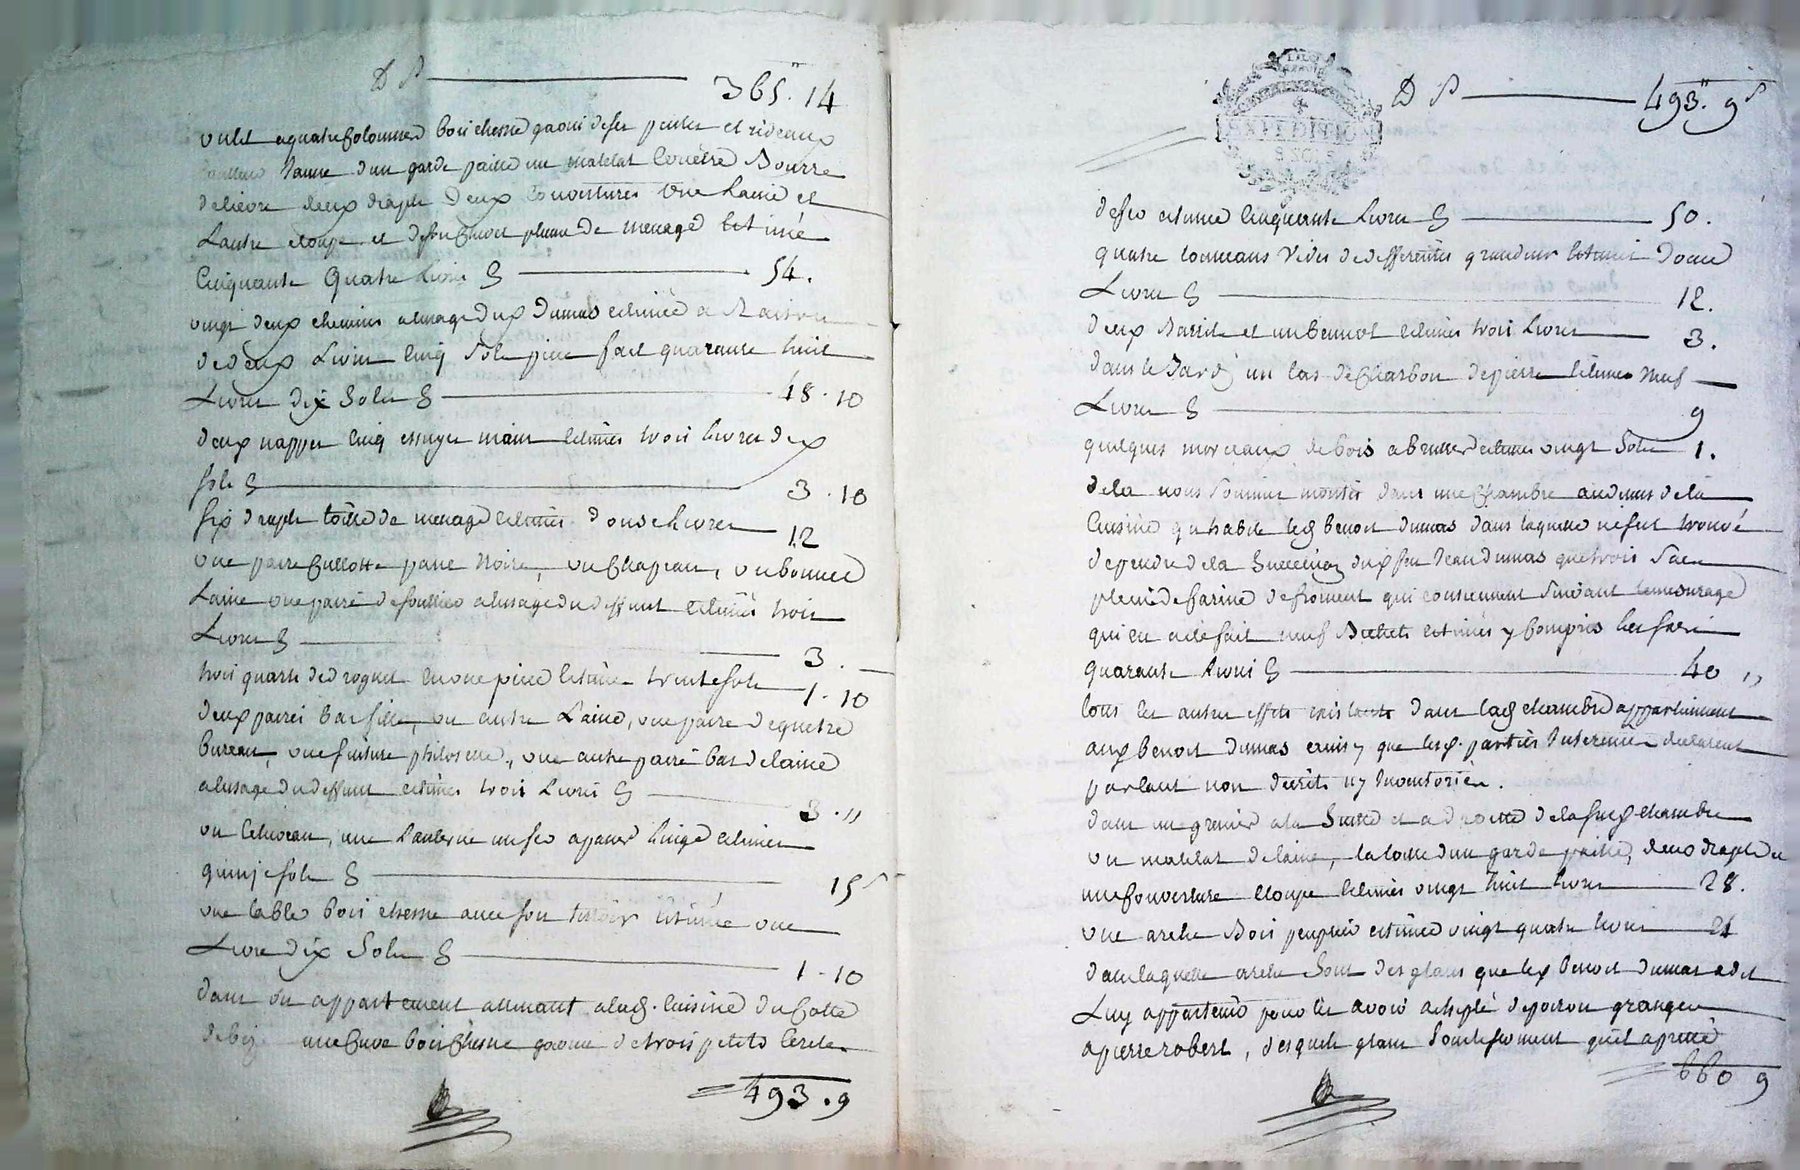 D P 365. 14
un lit a quatre colonnes bois chesne garni de ses pentes et rideaux
jaune d'un garde paille un matelat couëtre Bourre
de lievre deux draps deux couvertures une Laine et
L'autre etoupe et dessus plume de menage estimé
Cinquante Quatre Livres 54.
vingt deux chemises a l'usage dud Dumas estimée a Raison
de deux Livres Cinq Sols piece fait quarante huit
Livres dix Sols 48. 10
deux nappes Cinq essuye main estimés trois livres dix
sols 3. 10
six draps toille de menage estimés douse livres 12
une paire Cullotte panne Noire, un Chapeau, un bonnet
Laine une paire de soulliers a l'usage du deffunt estimés trois
Livres 3.
trois quarts de droguet en une piece estimé trente sols 1. 10
deux paires bas fille, un autre Laine, une paire de guetre
bureau, une philoselle, une autre paire bas de laine
a l'usage du deffunt estimés trois Livres 3. "
un une Lanterne un fer a passer linge estimés
quinze sols 15 s
une table bois chesne avec son tiroir estimée une
Livre dix Sols 1. 10
dans un appartement attenant a lad. cuisine du Cotté
de bize une Cuve bois Chesne garnie de trois petits Cercles
493. 9
EXPEDITION
D P 493. 9 s
de fer estimée Cinquante Livres 50.
quatre tonneaux Vides de differentes grandeurs estimés Douze
Livres 12.
deux Barils et un bennot estimés trois Livres 3.
dans le un tas de Charbon de pierre estimés Neuf
Livres 9
quelques morceaux de bois a bruler estimés vingt Sols 1.
de la nous sommes montés dans une Chambre au dessus de la
Cuisine qu'habite led benoit dumas dans laquelle ne s'est trouvé
dependre de la Succession dud feu Jean dumas que trois Sacs
pleins de farine de froment qui contiennent suivant le mesurage
qui en a été fait neuf Bichets estimés y Compris les sacs
quarante Livres 40 "
tous les autres effets existants dans lad chambre appartiennent
aud benoit dumas ainsy que lesd. parties declarent
partant non décrits ny Inventoriés.
dans un grenier a la Suitte et a droitte de la susd chambre
un matelat de laine, la toille d'un garde paille, deux draps et
une Couverture etoupe estimés vingt huit livres 28.
une arche Bois peuplier estimée vingt quatre livres 24
dans laquelle arche sont des glans que led benoit dumas a dit
Luy appartenir pour les avoir granger
a pierre robert, desquels glans
660 9